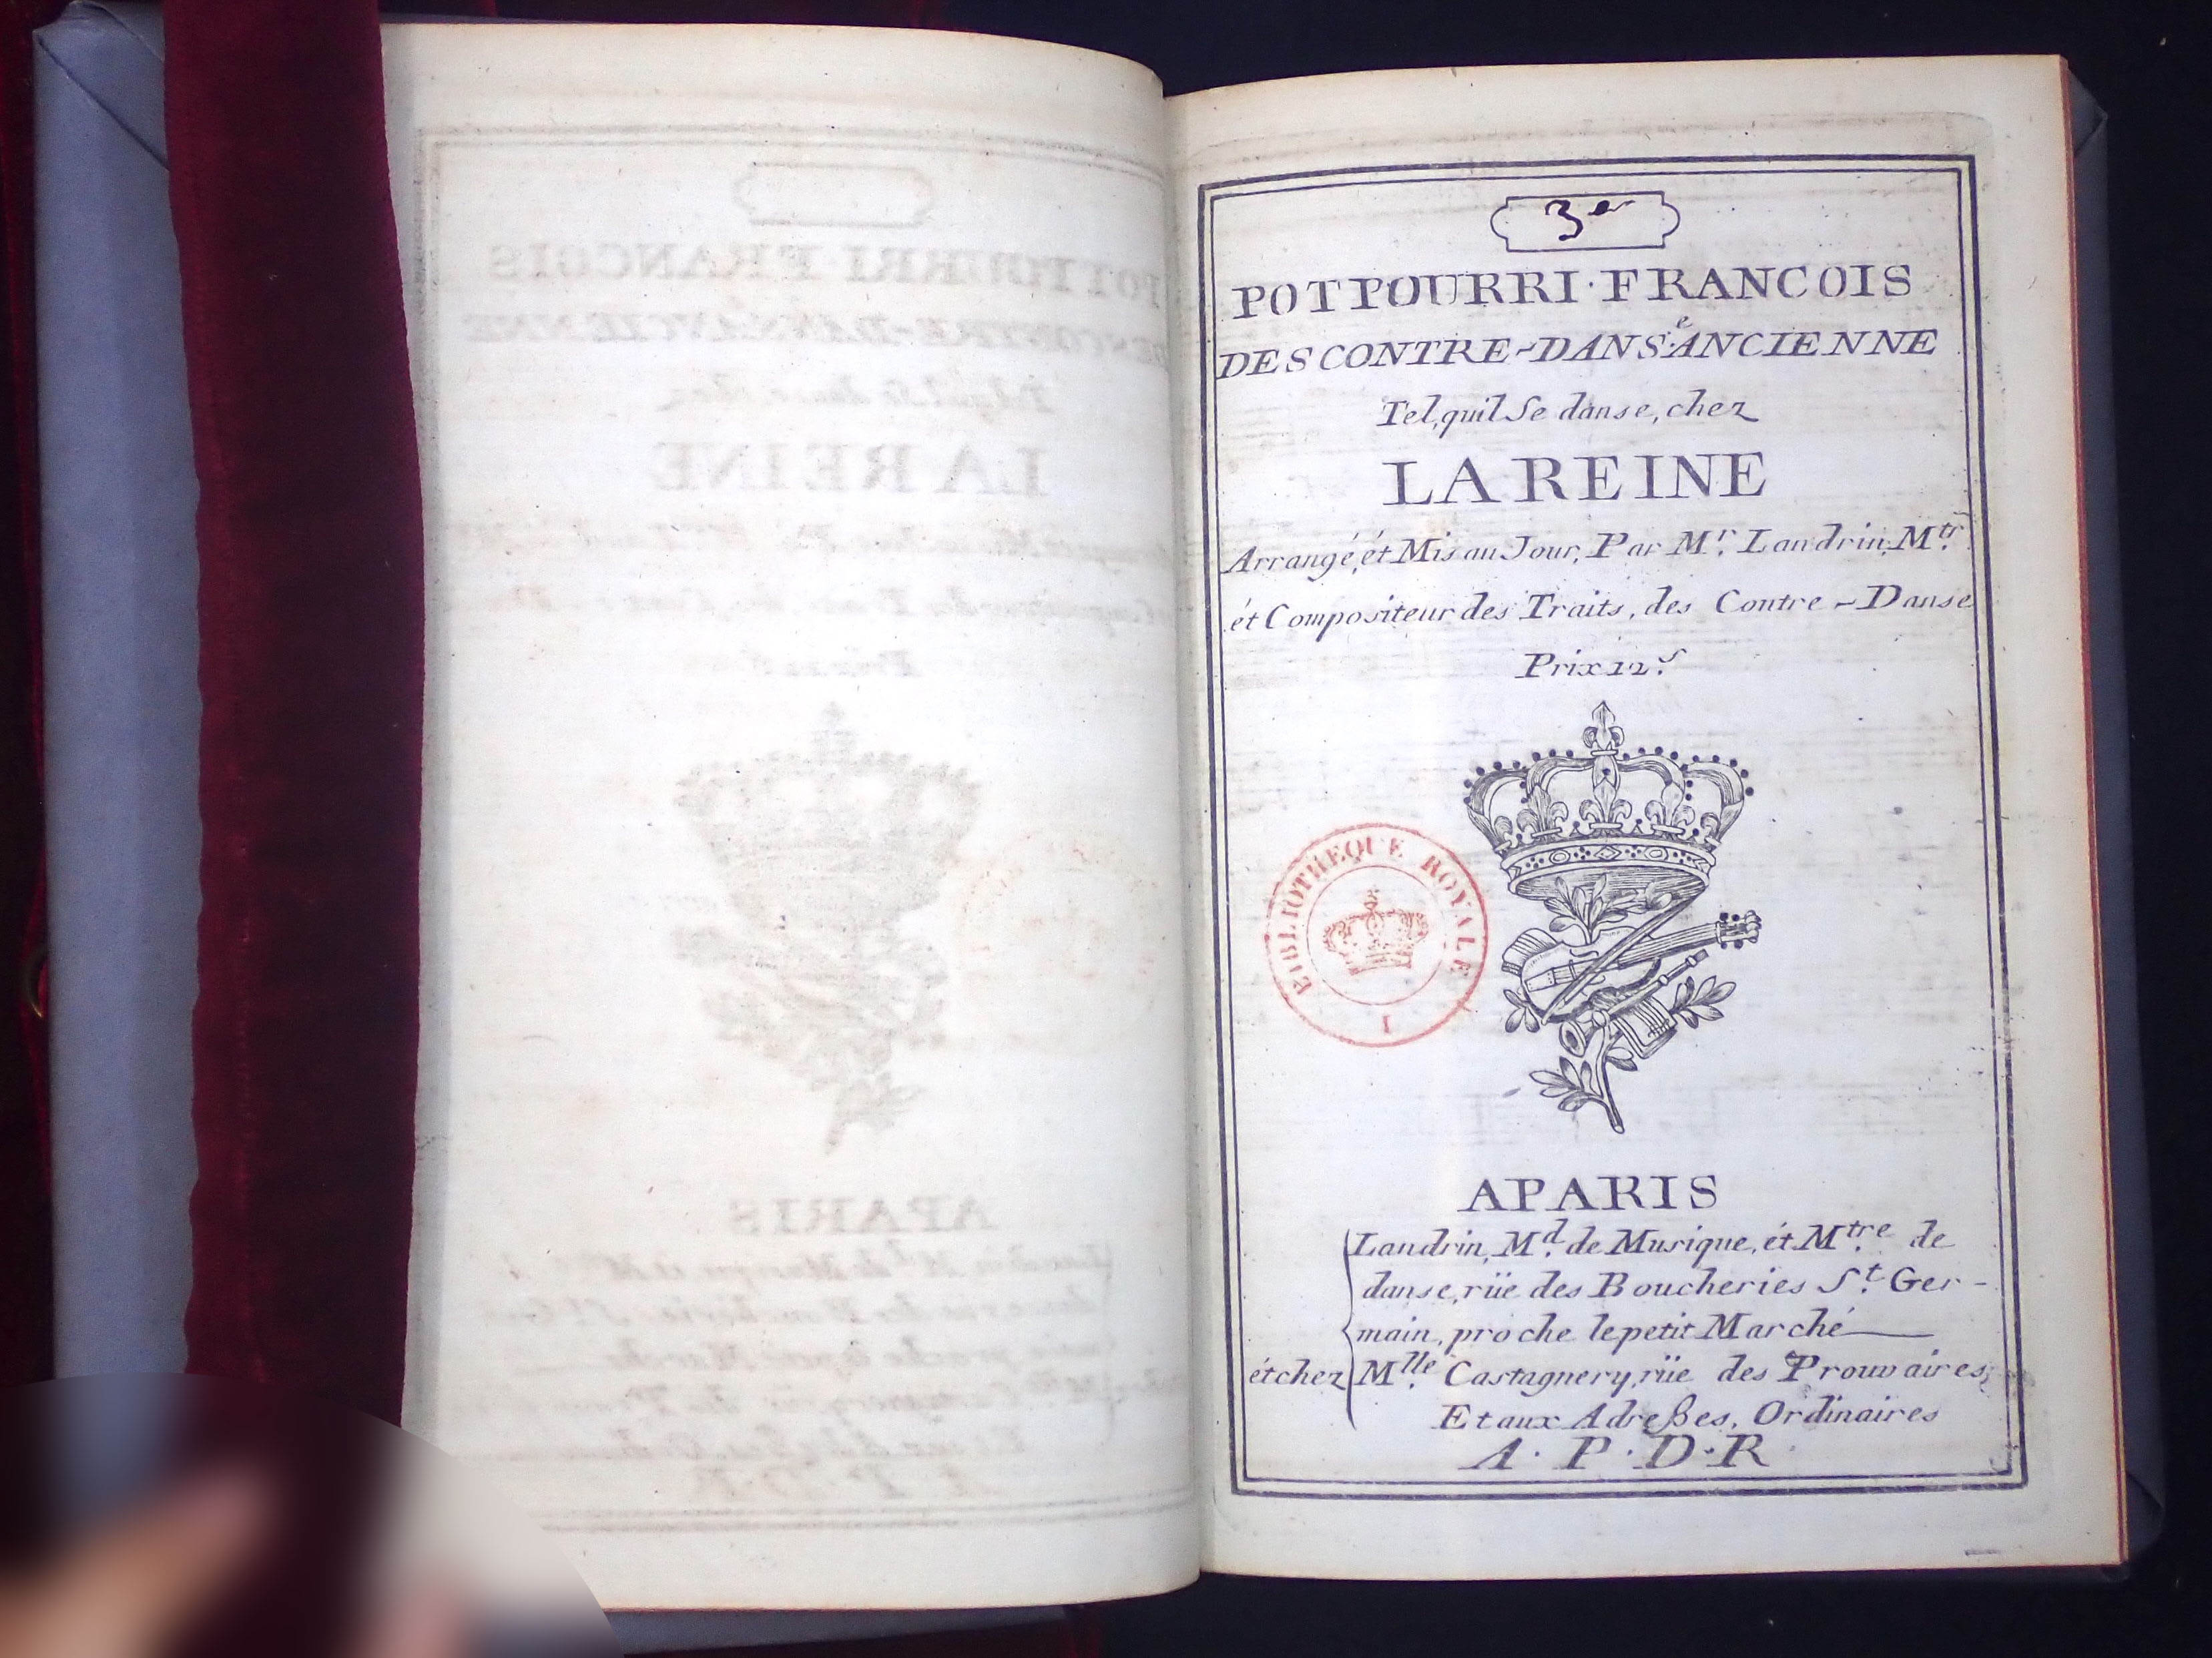 3e
POTPOURRI·FRANCOIS
DES CONTRE-DANSe ANCIENNE
Tel, quil Se danse, chez
LA REINE
Arrangé, ét Mis au Jour, Par Mr. Landrin, Mtr.
ét Compositeur des Traits, des Contre-Danse
Prix 12.s
BIBLIOTHEQUE ROYALE
I
APARIS
Landrin, Md. de Musique, ét Mtre. de
danse, rüe des Boucheries St. Ger-
main, proche le petit Marché
ét chez Mlle. Castagnery, rüe des Prouvaires,
Et aux Adreßes, Ordinaires
A·P·D·R